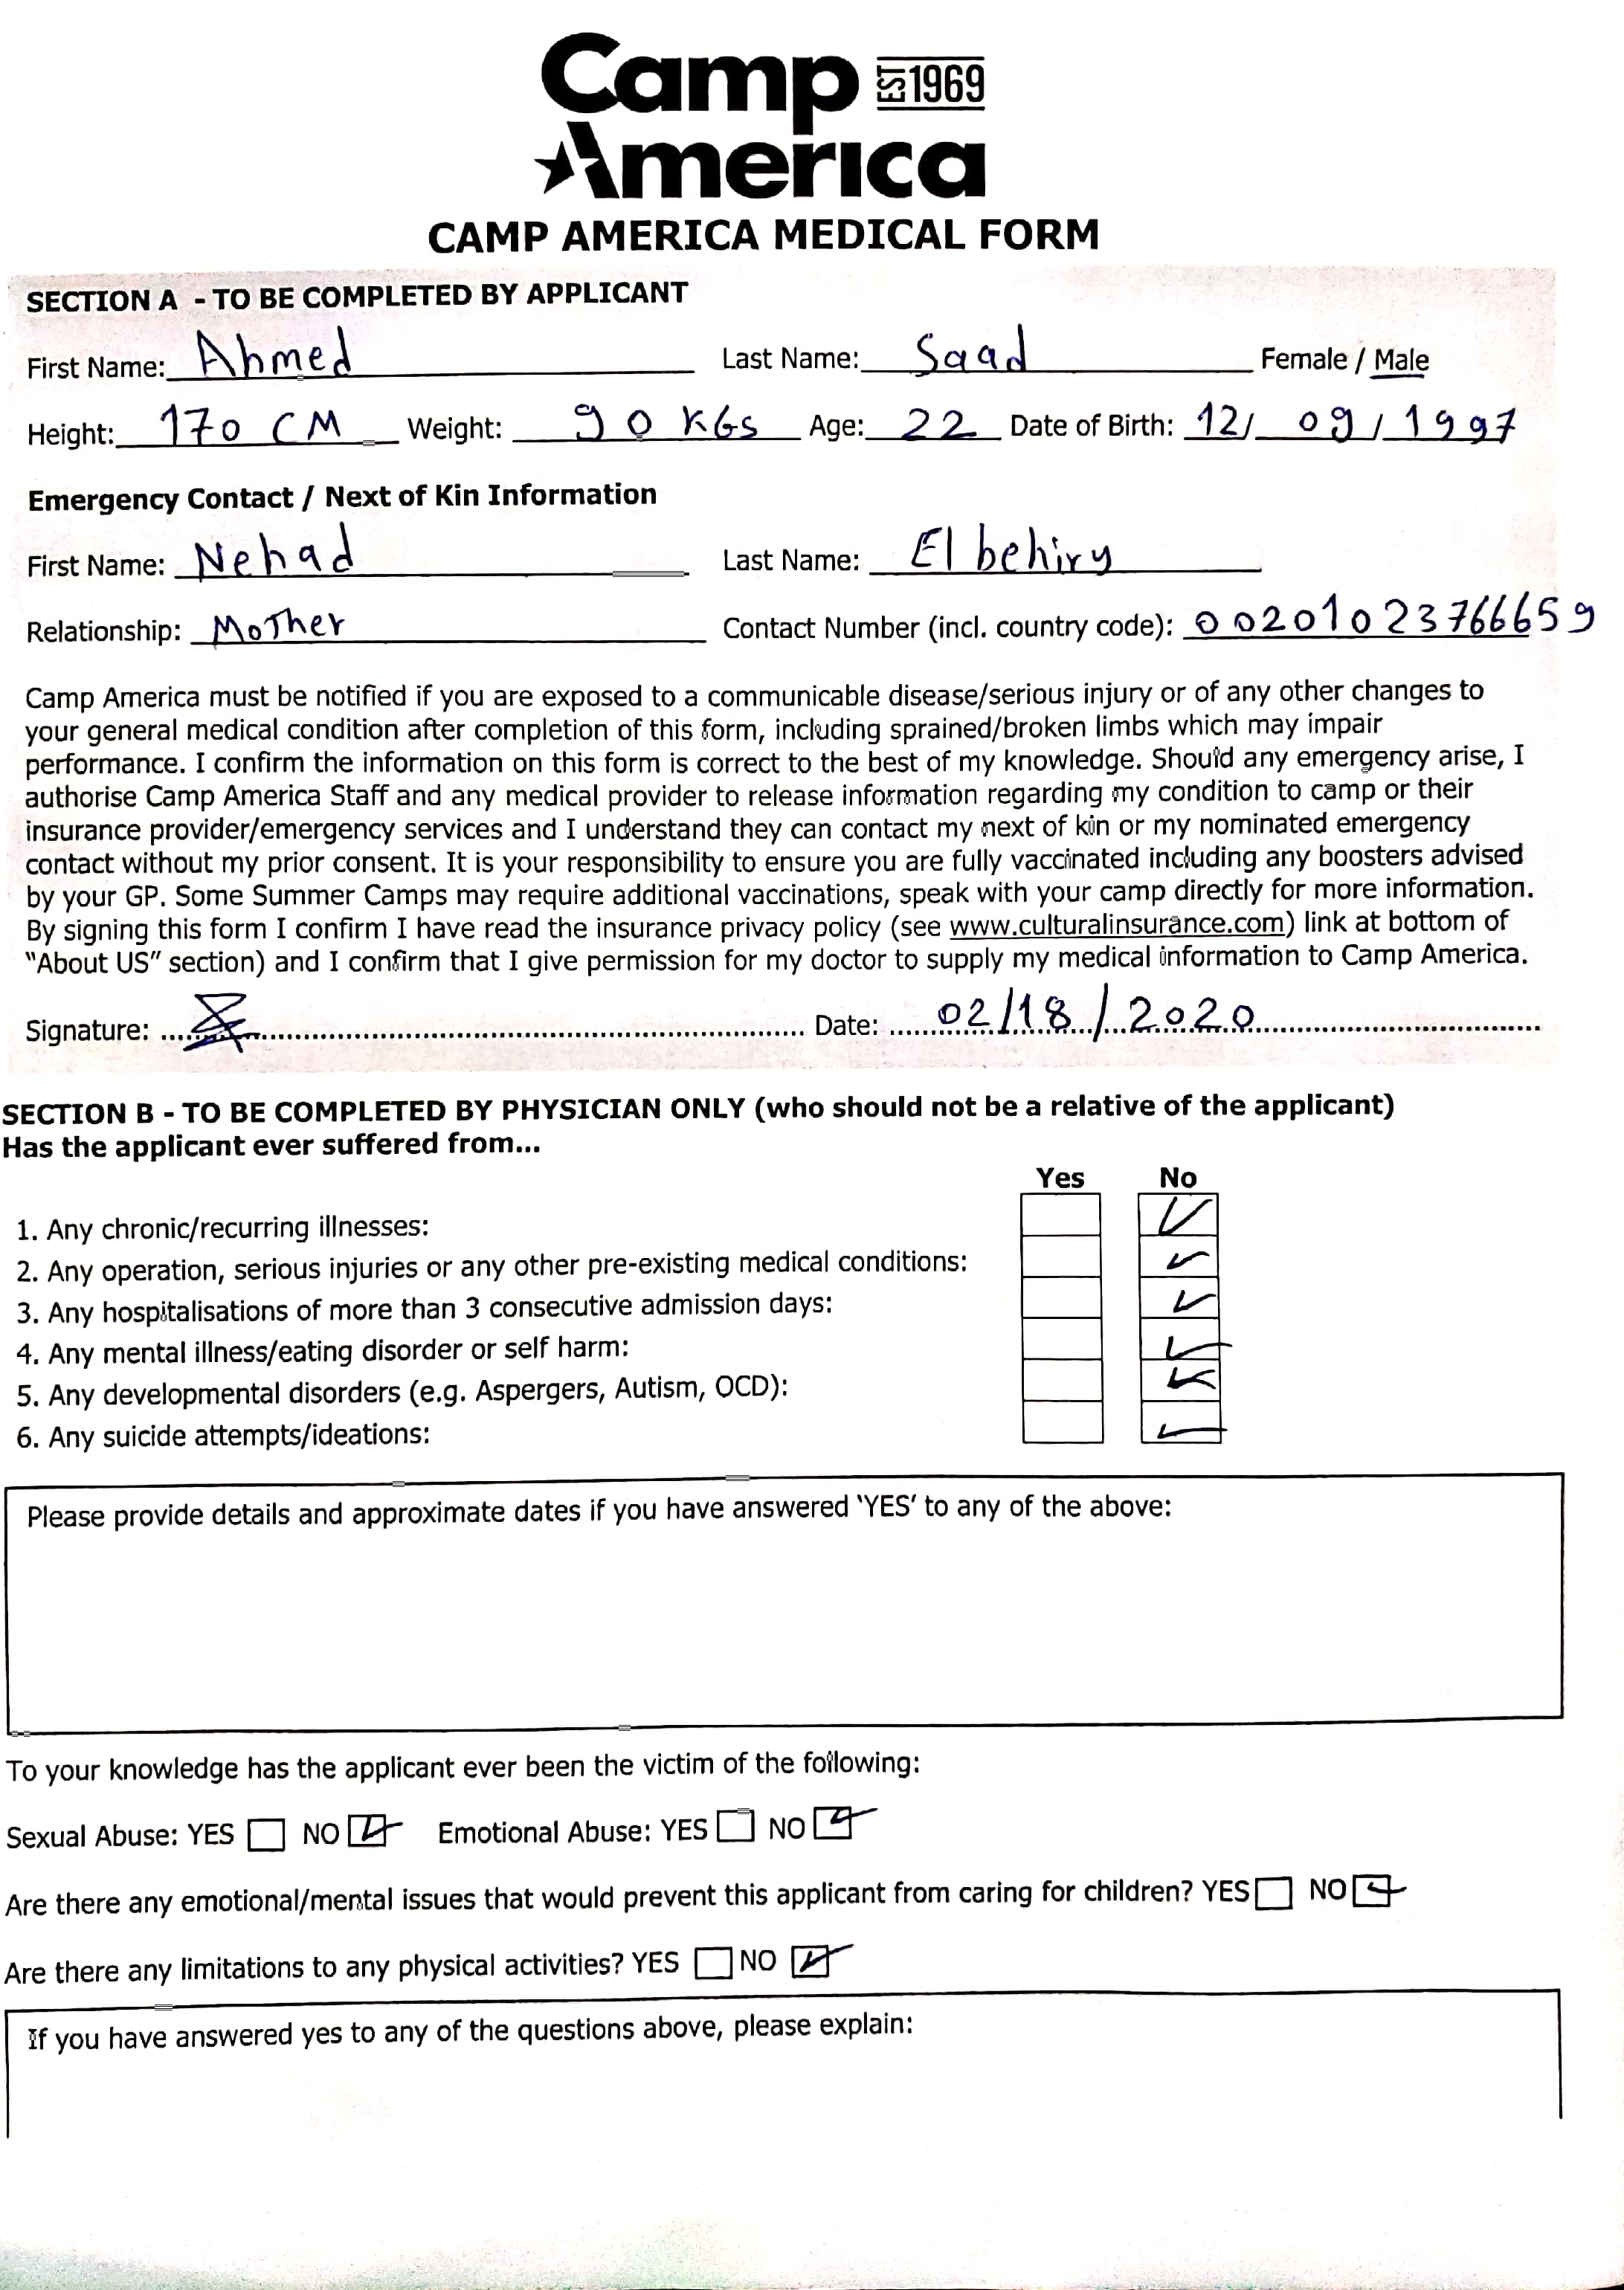 Camp EST 1969
America
CAMP AMERICA MEDICAL FORM
SECTION A - TO BE COMPLETED BY APPLICANT
First Name: Ahmed Last Name: Saad Female / Male
Height: 170 CM Weight: 90 KGs Age: 22 Date of Birth: 12/ 09 / 1997
Emergency Contact / Next of Kin Information
First Name: Nehad Last Name: El behiry
Relationship: Mother Contact Number (incl. country code): 00201023766659
Camp America must be notified if you are exposed to a communicable disease/serious injury or of any other changes to
your general medical condition after completion of this form, including sprained/broken limbs which may impair
performance. I confirm the information on this form is correct to the best of my knowledge. Should any emergency arise, I
authorise Camp America Staff and any medical provider to release information regarding my condition to camp or their
insurance provider/emergency services and I understand they can contact my next of kin or my nominated emergency
contact without my prior consent. It is your responsibility to ensure you are fully vaccinated including any boosters advised
by your GP. Some Summer Camps may require additional vaccinations, speak with your camp directly for more information.
By signing this form I confirm I have read the insurance privacy policy (see www.culturalinsurance.com) link at bottom of
"About US" section) and I confirm that I give permission for my doctor to supply my medical information to Camp America.
Signature: Date: 02/18/2020
SECTION B - TO BE COMPLETED BY PHYSICIAN ONLY (who should not be a relative of the applicant)
Has the applicant ever suffered from...
Yes No
1. Any chronic/recurring illnesses:
2. Any operation, serious injuries or any other pre-existing medical conditions:
3. Any hospitalisations of more than 3 consecutive admission days:
4. Any mental illness/eating disorder or self harm:
5. Any developmental disorders (e.g. Aspergers, Autism, OCD):
6. Any suicide attempts/ideations:
Please provide details and approximate dates if you have answered 'YES' to any of the above:
To your knowledge has the applicant ever been the victim of the following:
Sexual Abuse: YES NO Emotional Abuse: YES NO
Are there any emotional/mental issues that would prevent this applicant from caring for children? YES NO
Are there any limitations to any physical activities? YES NO
If you have answered yes to any of the questions above, please explain: